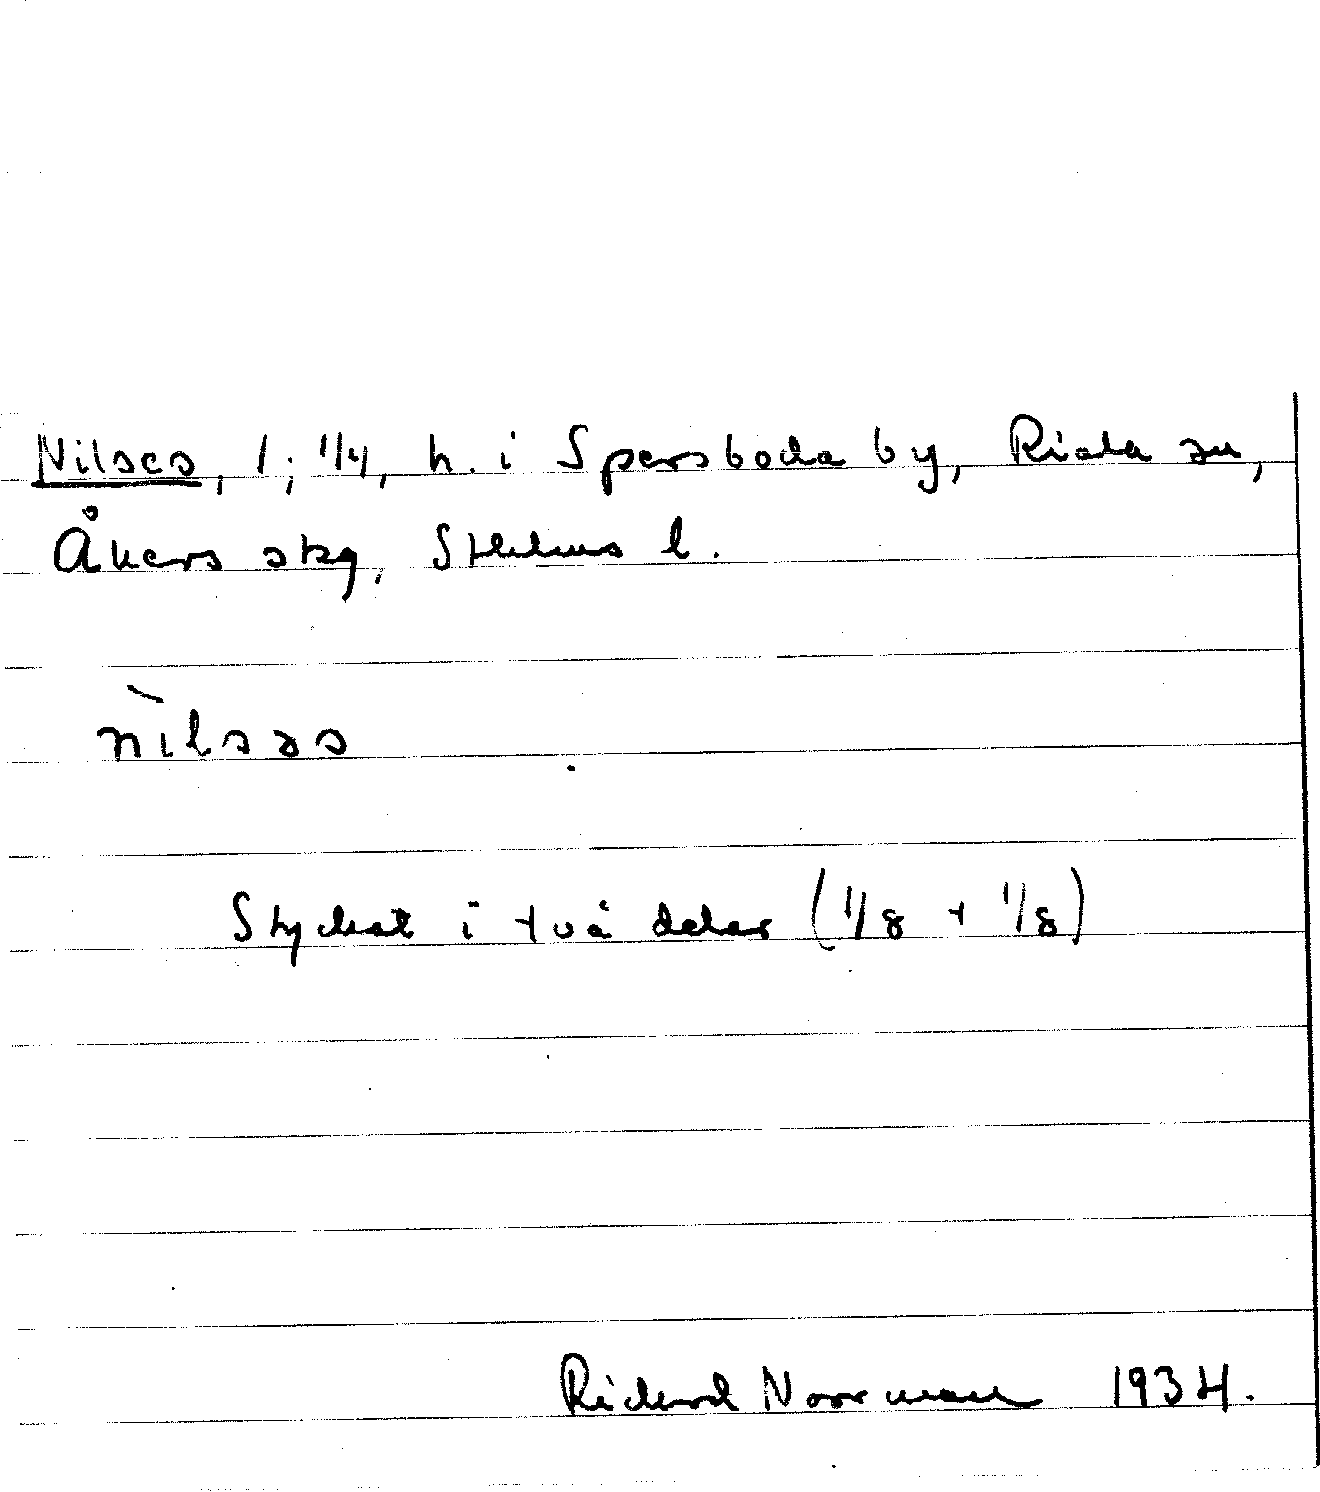 Nilses, 1; 1/4, h. i Spersboda by, Riala sn,
Åkers skg, Sthlms l.
nìlsəs
Styckat i två delar (1/8 + 1/8)
Richard Norrman 1934.